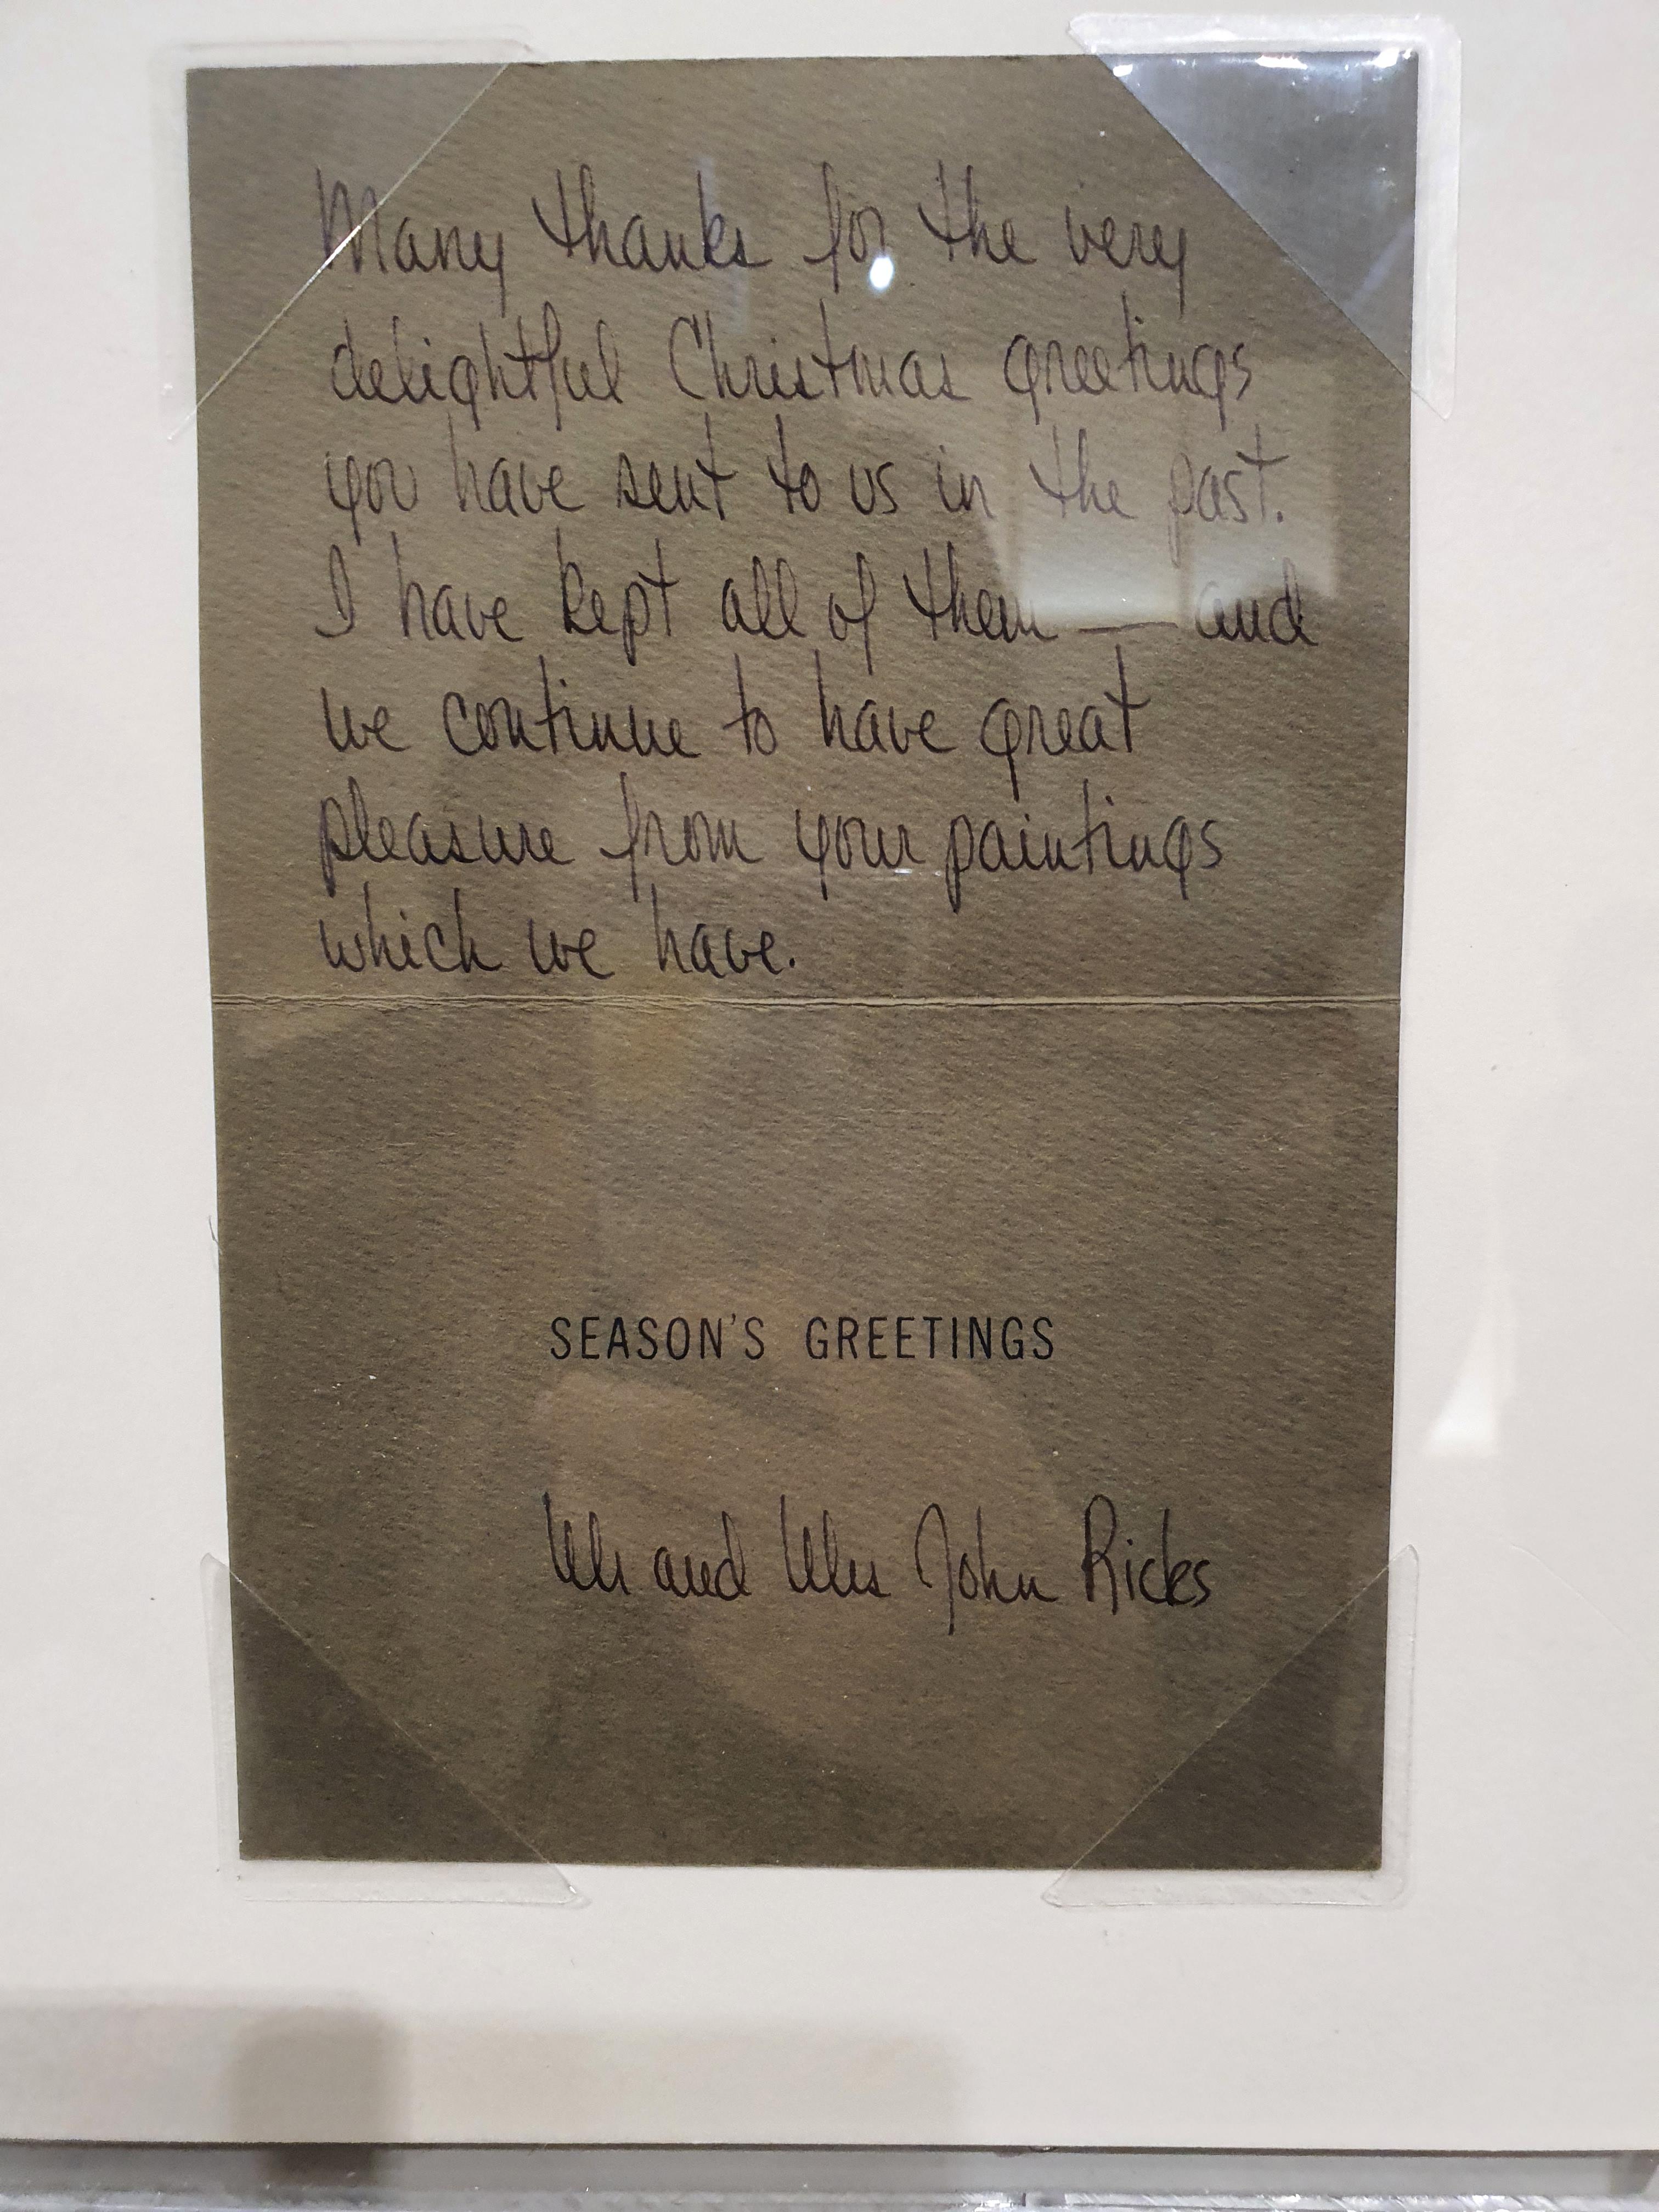 Many thanks for the very
delightful Christmas greetings
you have sent to us in the past.
I have kept all of them — and
we continue to have great
pleasure from your paintings
which we have.
SEASON'S GREETINGS
Mr and Mrs John Ricks